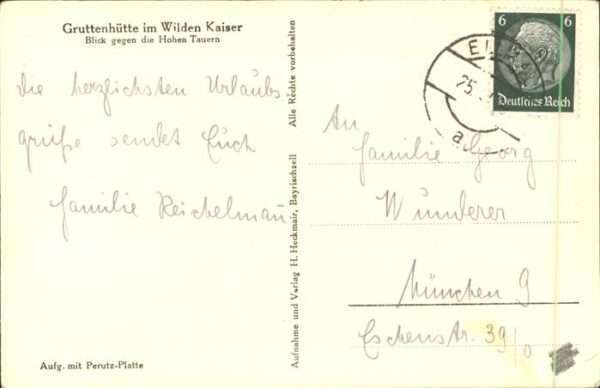 Gruttenhütte im Wilden Kaiser
Blick gegen die Hohen Tauern
Die herzlichsten Urlaubs
grüße sendet Euch
Familie Reichelmair
Aufg. mit Perutz-Platte
Aufnahme und Verlag H. Heckmair, Bayrischzell Alle Rechte vorbehalten
6 6
Deutsches Reich
25.
a
An
Familie Georg
Wunderer
München 9
Eschenstr. 39/0